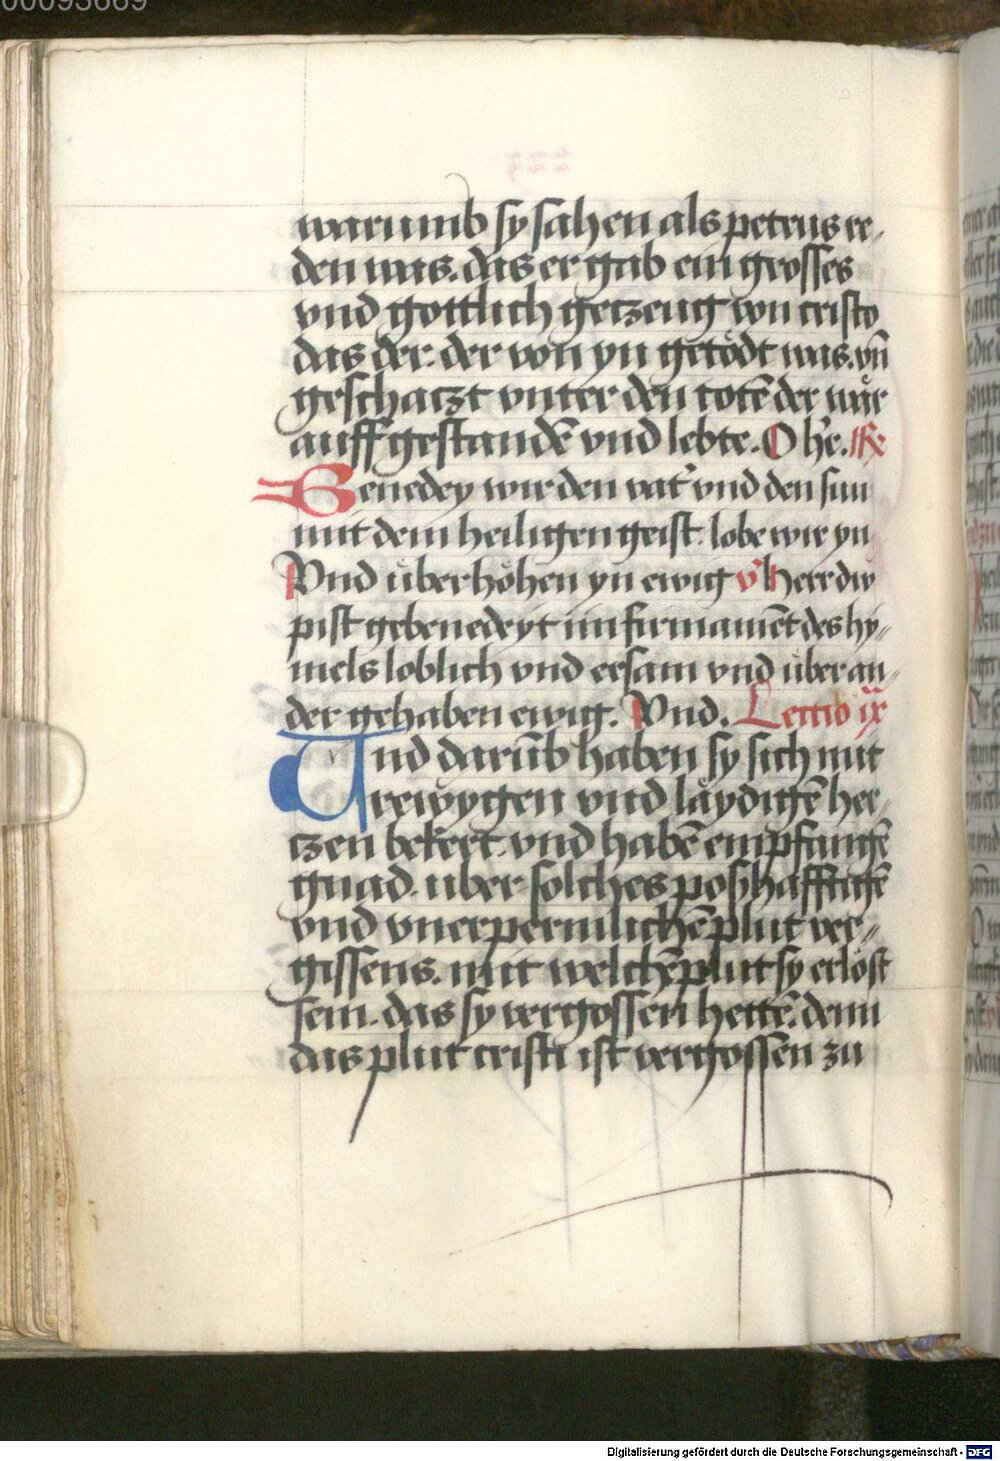 00093669
warumb sy sahen als petrus re„
den was. das er gab ein grosses
vnd gottlich getzeug von cristo
das der. der von yn getödt was. vn̄
geschatzt vnter den totē der wär
auff gestandē vnd lebte. O he. Rx
Benedey wir den vat' vnd den sun
mit dem heiligen geist. lobe wir yn
Vnd überhöhen yn ewig v' Herr dw
pist gebenedeyt im firmamēt des hy„
mels loblich vnd ersam vnd über an„
der gehaben ewig. Vnd. Lectio ix
Vnd darūb haben sy sich mit
rewygen vnd läydigē her„
czen bekert. vnd habē empfangē
gnad. uber solches poßhafftigē
vnd vnerpermlichē plut ver„
gissens. mit welchē plut sy erlöst
sein. das sy vergossen hettē. denn
das plut cristi ist vergossen zu
Digitalisierung gefördert durch die Deutsche Forschungsgemeinschaft - DFG